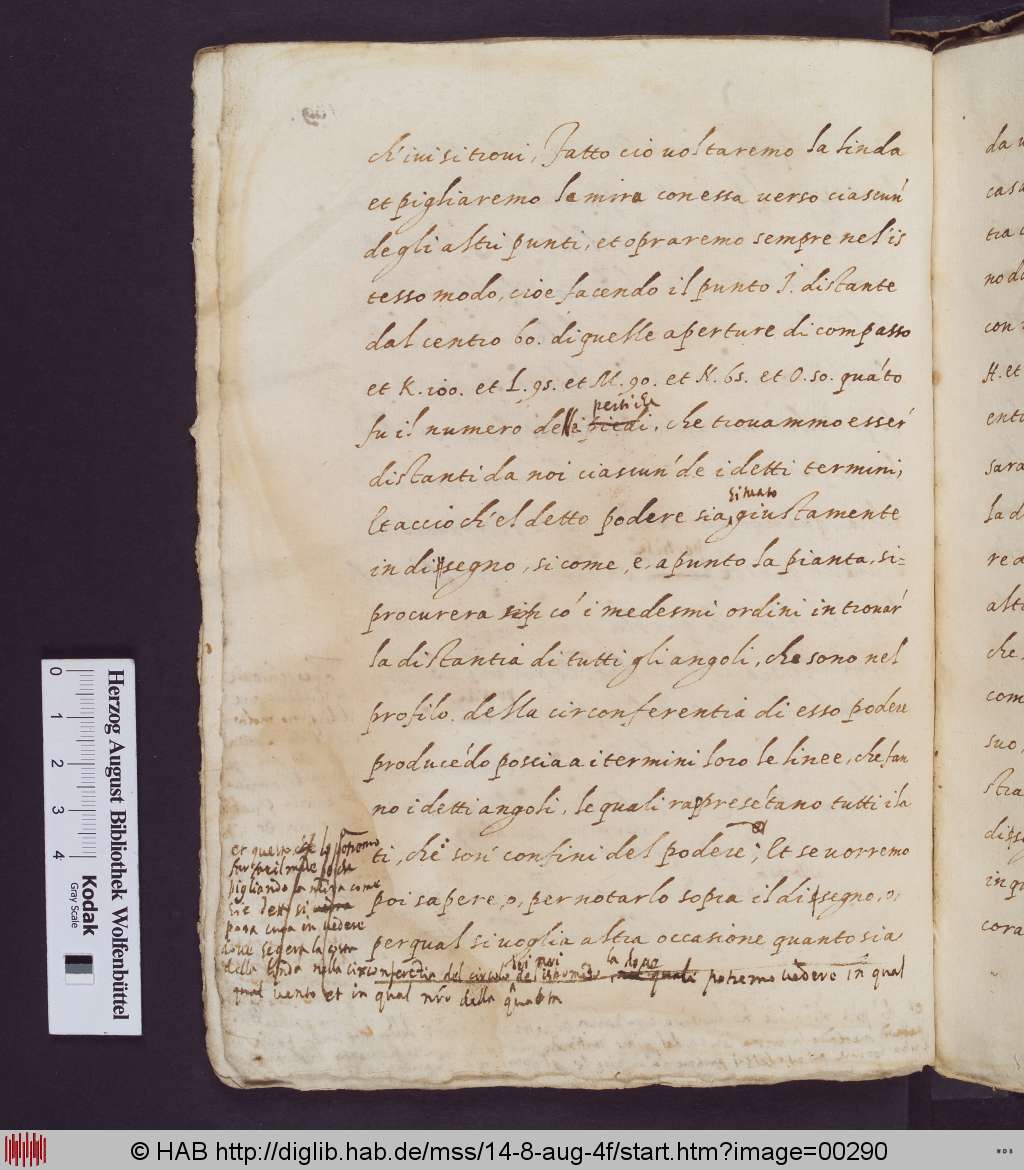 ch'iui si troui, Fatto ciò uoltaremo la linda
et pigliaremo la mira con essa uerso ciascun'
degli altri punti, et opraremo sempre nel is
tesso modo, cioe facendo il punto J. distante
dal centro 60. di quelle aperture di compasso
et K. 100. et L. 95. et M. 90. et N. 65. et O. 50. quáto
pertiche
fu il numero delle piedi, che trouammo esser'
distanti da noi ciascun' de i detti termini,
situato
Et accio ch'el detto podere sia giustamente
in dissegno, si come, e, apunto la pianta, si=
procurera có i medesmi ordini in trouar'
la distantia di tutti gli angoli, che sono nel
profilo della circonferentia di esso podere
producédo poscia a i termini loro le linee, che fan
no i detti angoli, le quali rappresétano tutti i la
ti, che son' confini del podere; Et se uorremo
poi sapere, o, per notarlo sopra il dissegno, o,
per qual si uoglia altra occasione quanto sia
et questo lo potremo
pigliando la mira come
si è detto si
cura in uedere
doue segera la
della linda nella circonferentia del circulo dei uenti potremo uedere in qual
qual uento et in qual della
da u
casa
tra
no d
con
H. et
ent
sara
la d
re a
alt
che
com
suo
stra
diss
in q
cora
0 1 2 3 4
Kodak
Gray Scale
Herzog August Bibliothek Wolfenbüttel
© HAB http://diglib.hab.de/mss/14-8-aug-4f/start.htm?image=00290